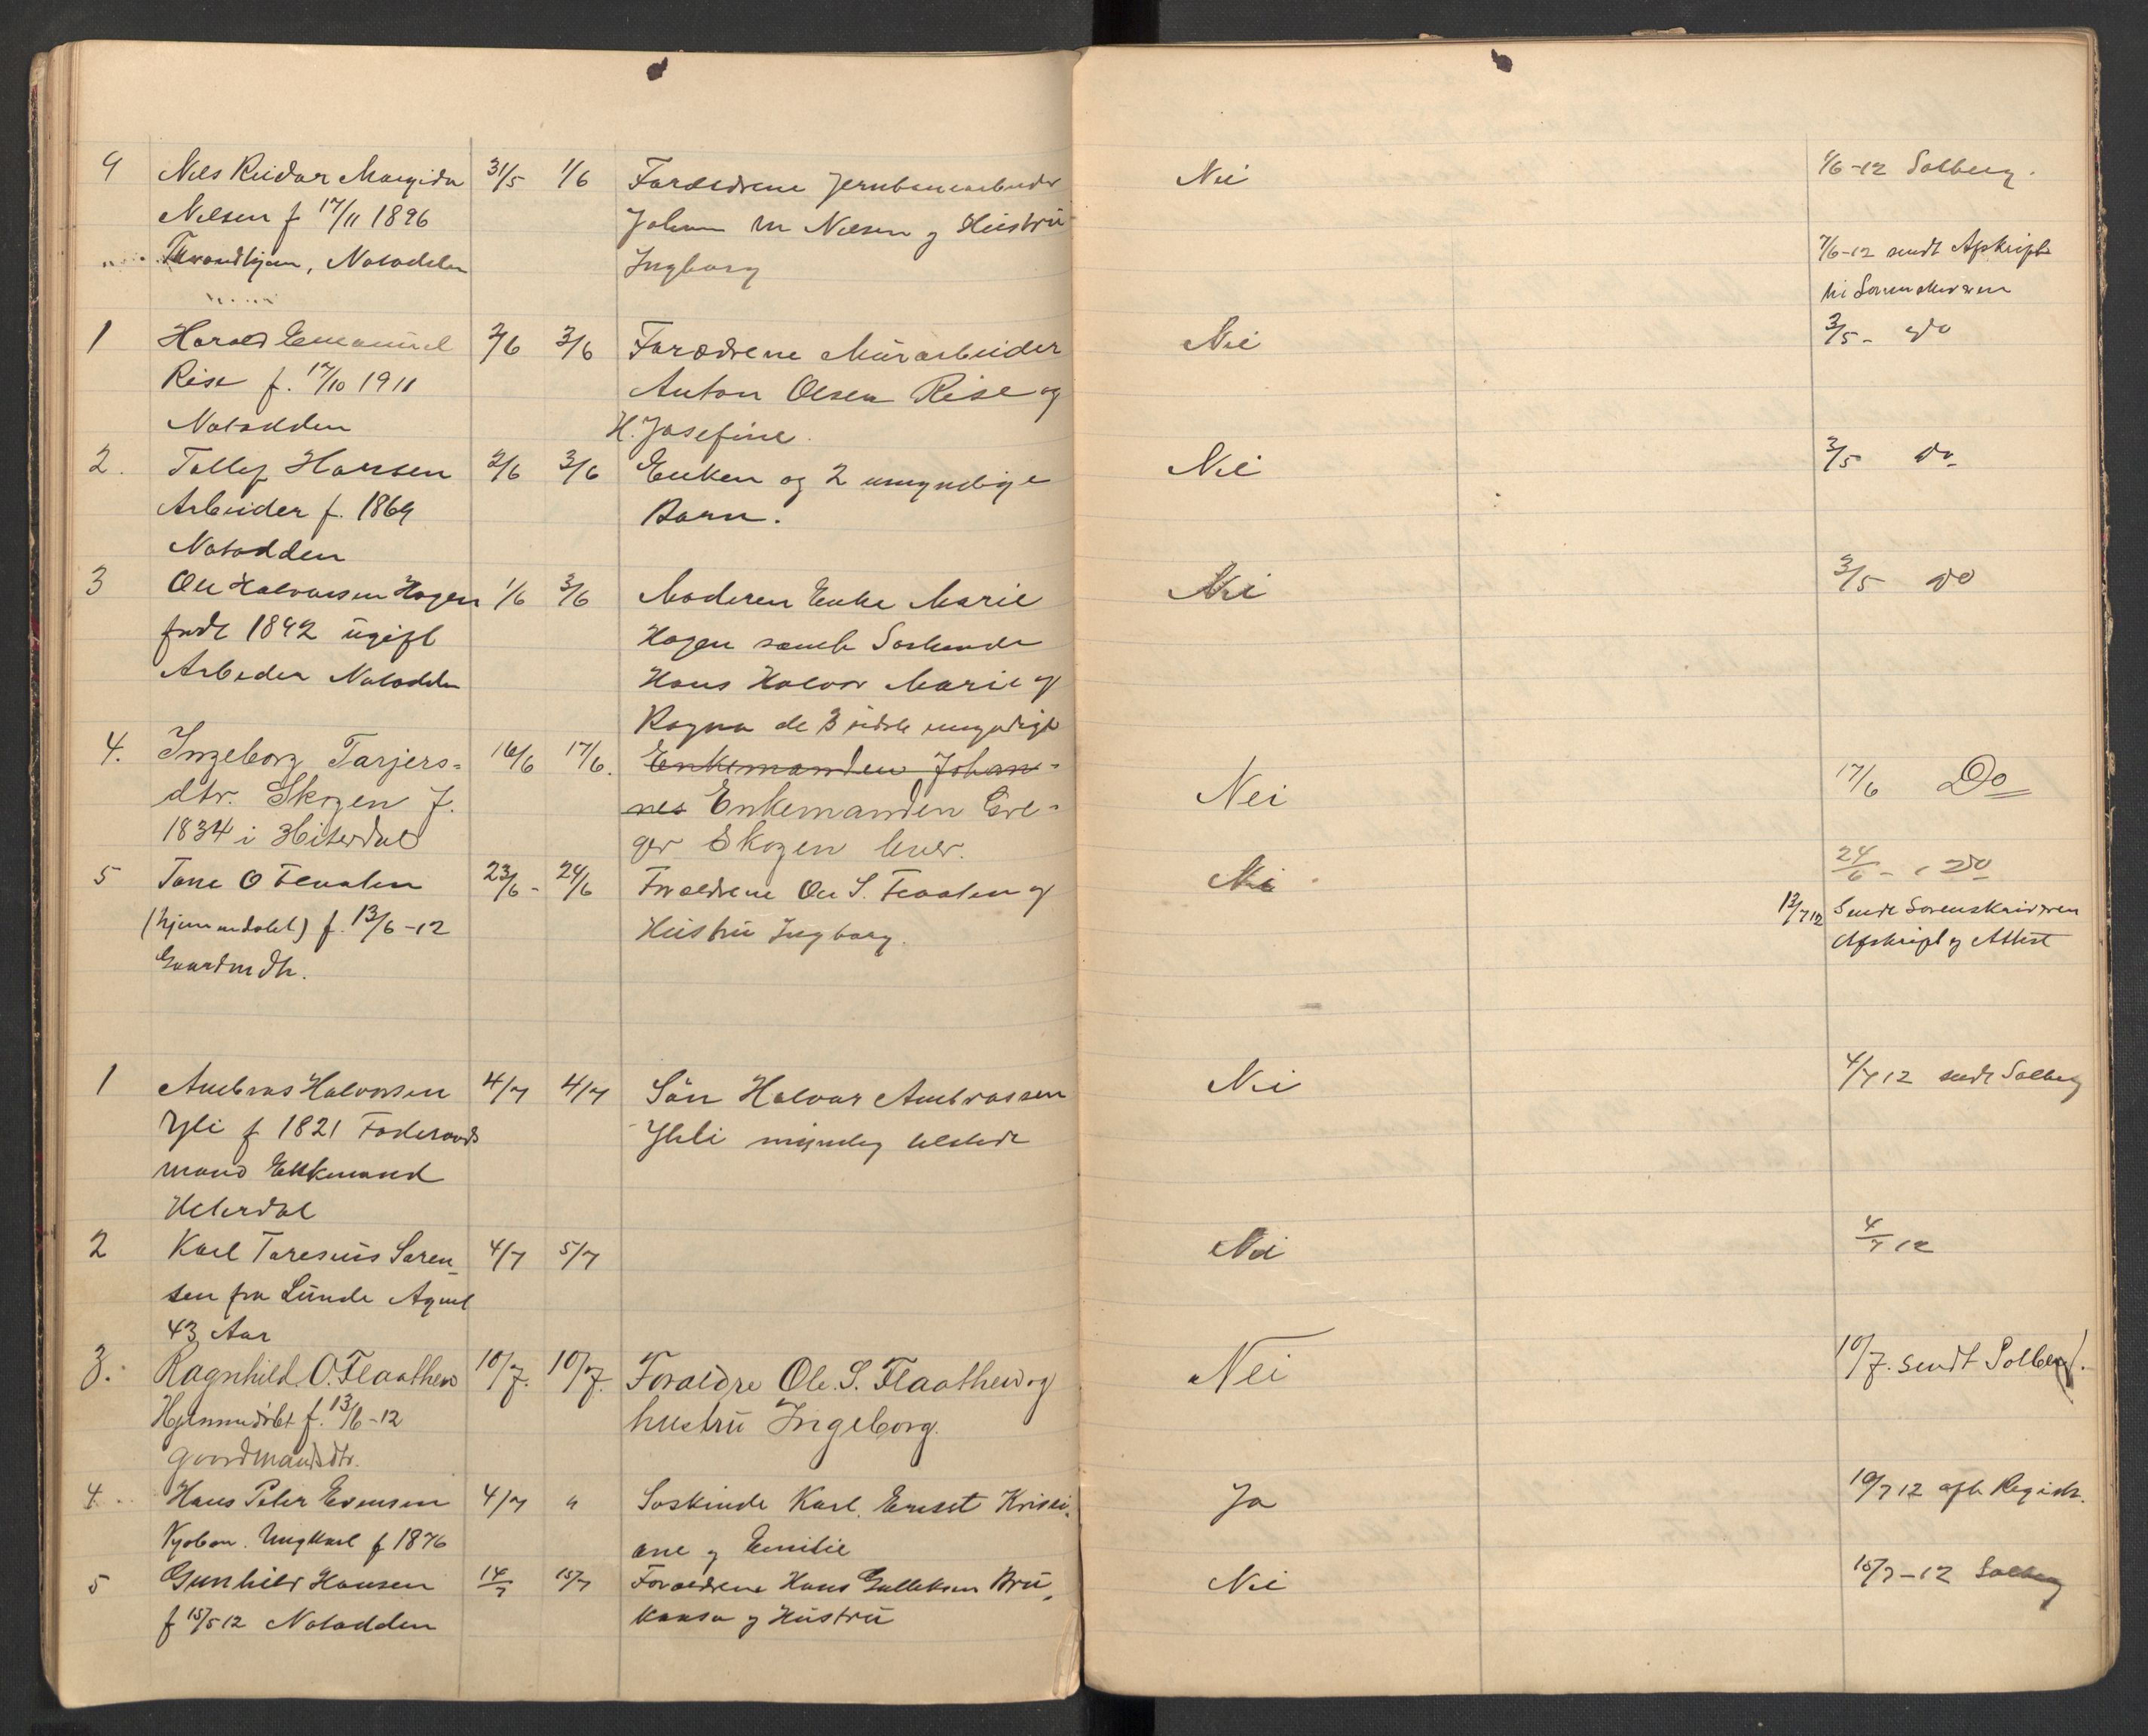 9 Nils Reidar Margido 31/5 1/6 Forældrene Jernbanearbeider Nei 1/6-12 Solberg.
Nilsen f 17/11 1896 Johan M Nilsen og Hustru
Throndhjem, Notodden Ingborg 7/6-12 sendt Afskrift
til Sorenskriveren
1 Harald Emanuel 2/6 3/6 Forældrene Murarbeider Nei 3/5 - do
Rise f. 17/10 1911 Anton Olsen Rise og
Notodden H. Josefine.
2. Tollef Hansen 2/6 3/6 Enken og 2 umyndige Nei 3/5 do
Arbeider f. 1869 Barn.
Notodden
3 Ole Halvorsen Hagen 1/6 3/6 Moderen Enke Marie Nei 3/5 do
født 1892 ugift Hagen samt Søskende
Arbeder Notodden Hans Halvor Marie og
Ragna de 3 sidste umyndige
4. Ingeborg Tarjers= 16/6 17/6. Enkemanden Johan= Nei 17/6 Do
dtr. Skogen f. nes Enkemanden Gre=
1834 i Hiterdal ger Skogen lever.
5 Tone O Flaaten 23/6 - 24/6 Forældrene Ole S. Flaaten og Nei 24/6 - do
(hjemmedøbt) f. 13/6-12 Hustru Ingborg. 13/7 12 Sendt Sorenskriveren
Gaardmdtr. Afskrift og Attest
1 Ambros Halvorsen 4/7 4/7 Sön Halvor Ambrossen Nei 4/7 12 sendt Solberg
Yli f 1821 Foderaads Yli myndig tilstede
mand Enkmand
Hiterdal
2 Karl Taresius Soren_ 4/7 5/7 Nei 4/7 12
sen fra Lunde
43 Aar
3. Ragnhild. O. Flaathen 10/7. 10/7. Foraldre Ole. S. Flaathen og Nei 10/7. sendt Solberg.
Hjemmedøbt f. 13/6-12 hustru Ingeborg.
gaardmandsdtr.
4. Hans Peter Evensen 4/7 " Søskinde Karl, Ernst Kristi. Ja 10/7 12 afh. Registr.
Ungkarl f 1876 ane og Emilie
5 Gunhild Hansen 14/7 15/7 Foraldrene Hans Gulleksen Bru Nei 15/7-12 Solberg
f 15/5 12 Notodden og Hustru